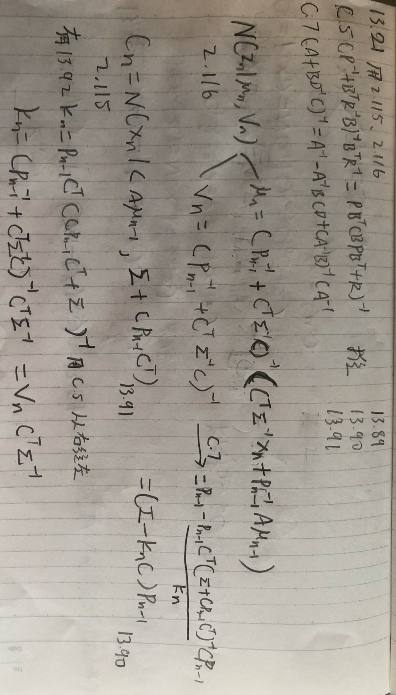 13.21 用 2.115、2.116
C.5 (P⁻¹+BᵀR⁻¹B)⁻¹BᵀR⁻¹ = PBᵀ(BPBᵀ+R)⁻¹ 13.89
C.7 (A+BD⁻¹C)⁻¹ = A⁻¹-A⁻¹B(D+CA⁻¹B)⁻¹CA⁻¹ 13.90
13.91
N(zn|μn, Vn) μn = (Pn-1⁻¹ + CᵀΣ⁻¹C)⁻¹(CᵀΣ⁻¹xn + Pn-1⁻¹Aμn-1)
2.116 Vn = (Pn-1⁻¹ + CᵀΣ⁻¹C)⁻¹ C.7→ = Pn-1 - Pn-1Cᵀ(Σ+CPn-1Cᵀ)⁻¹CPn-1
kn
Cn = N(xn|CAμn-1, Σ+CPn-1Cᵀ) 13.91 = (I-knC)Pn-1 13.90
2.115
有13.92 kn = Pn-1Cᵀ(CPn-1Cᵀ+Σ)⁻¹ 用C.5 从右往左
kn = (Pn-1⁻¹ + CᵀΣ⁻¹C)⁻¹CᵀΣ⁻¹ = VnCᵀΣ⁻¹